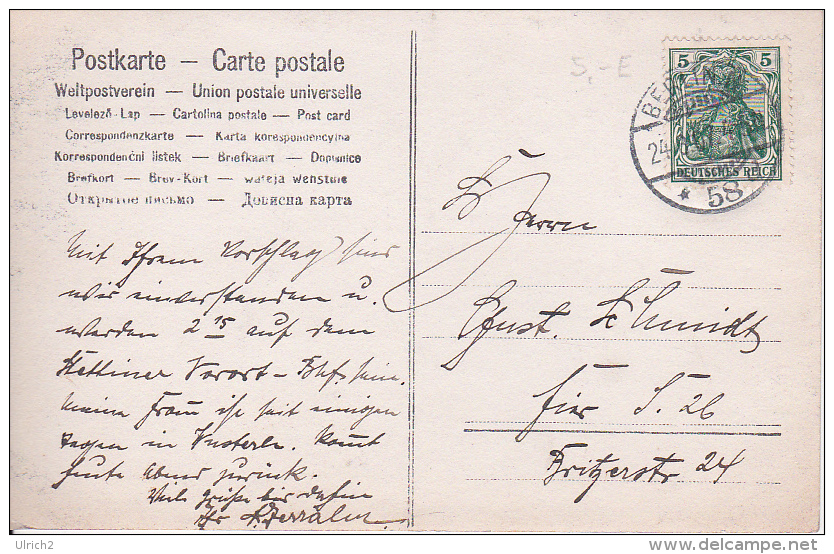 Postkarte — Carte postale
Weltpostverein — Union postale universelle
Levelező-Lap — Cartolina postale — Post card
Correspondenzkarte — Karta korespondencyjna
Korrespondenční lístek — Briefkaart — Dopisnice
Brefkort — Brev-Kort —
Открытое письмо — Дописна карта
Mit Ihrem Vorschlag sind
wir einverstanden u.
werden 2 15 auf dem
Stettiner Vorort-Bhf. sein.
Meine Frau ist seit einigen
Tagen in Kommt
heute Abend zurück.
Viele Grüße bis dahin
Ihr
Herrn
Gust. Schmidt
hier S. 26
Britzerstr 24
5,-E
5 5
DEUTSCHES REICH
BERLIN
58
Ulrich2
http://www.delcampe.net